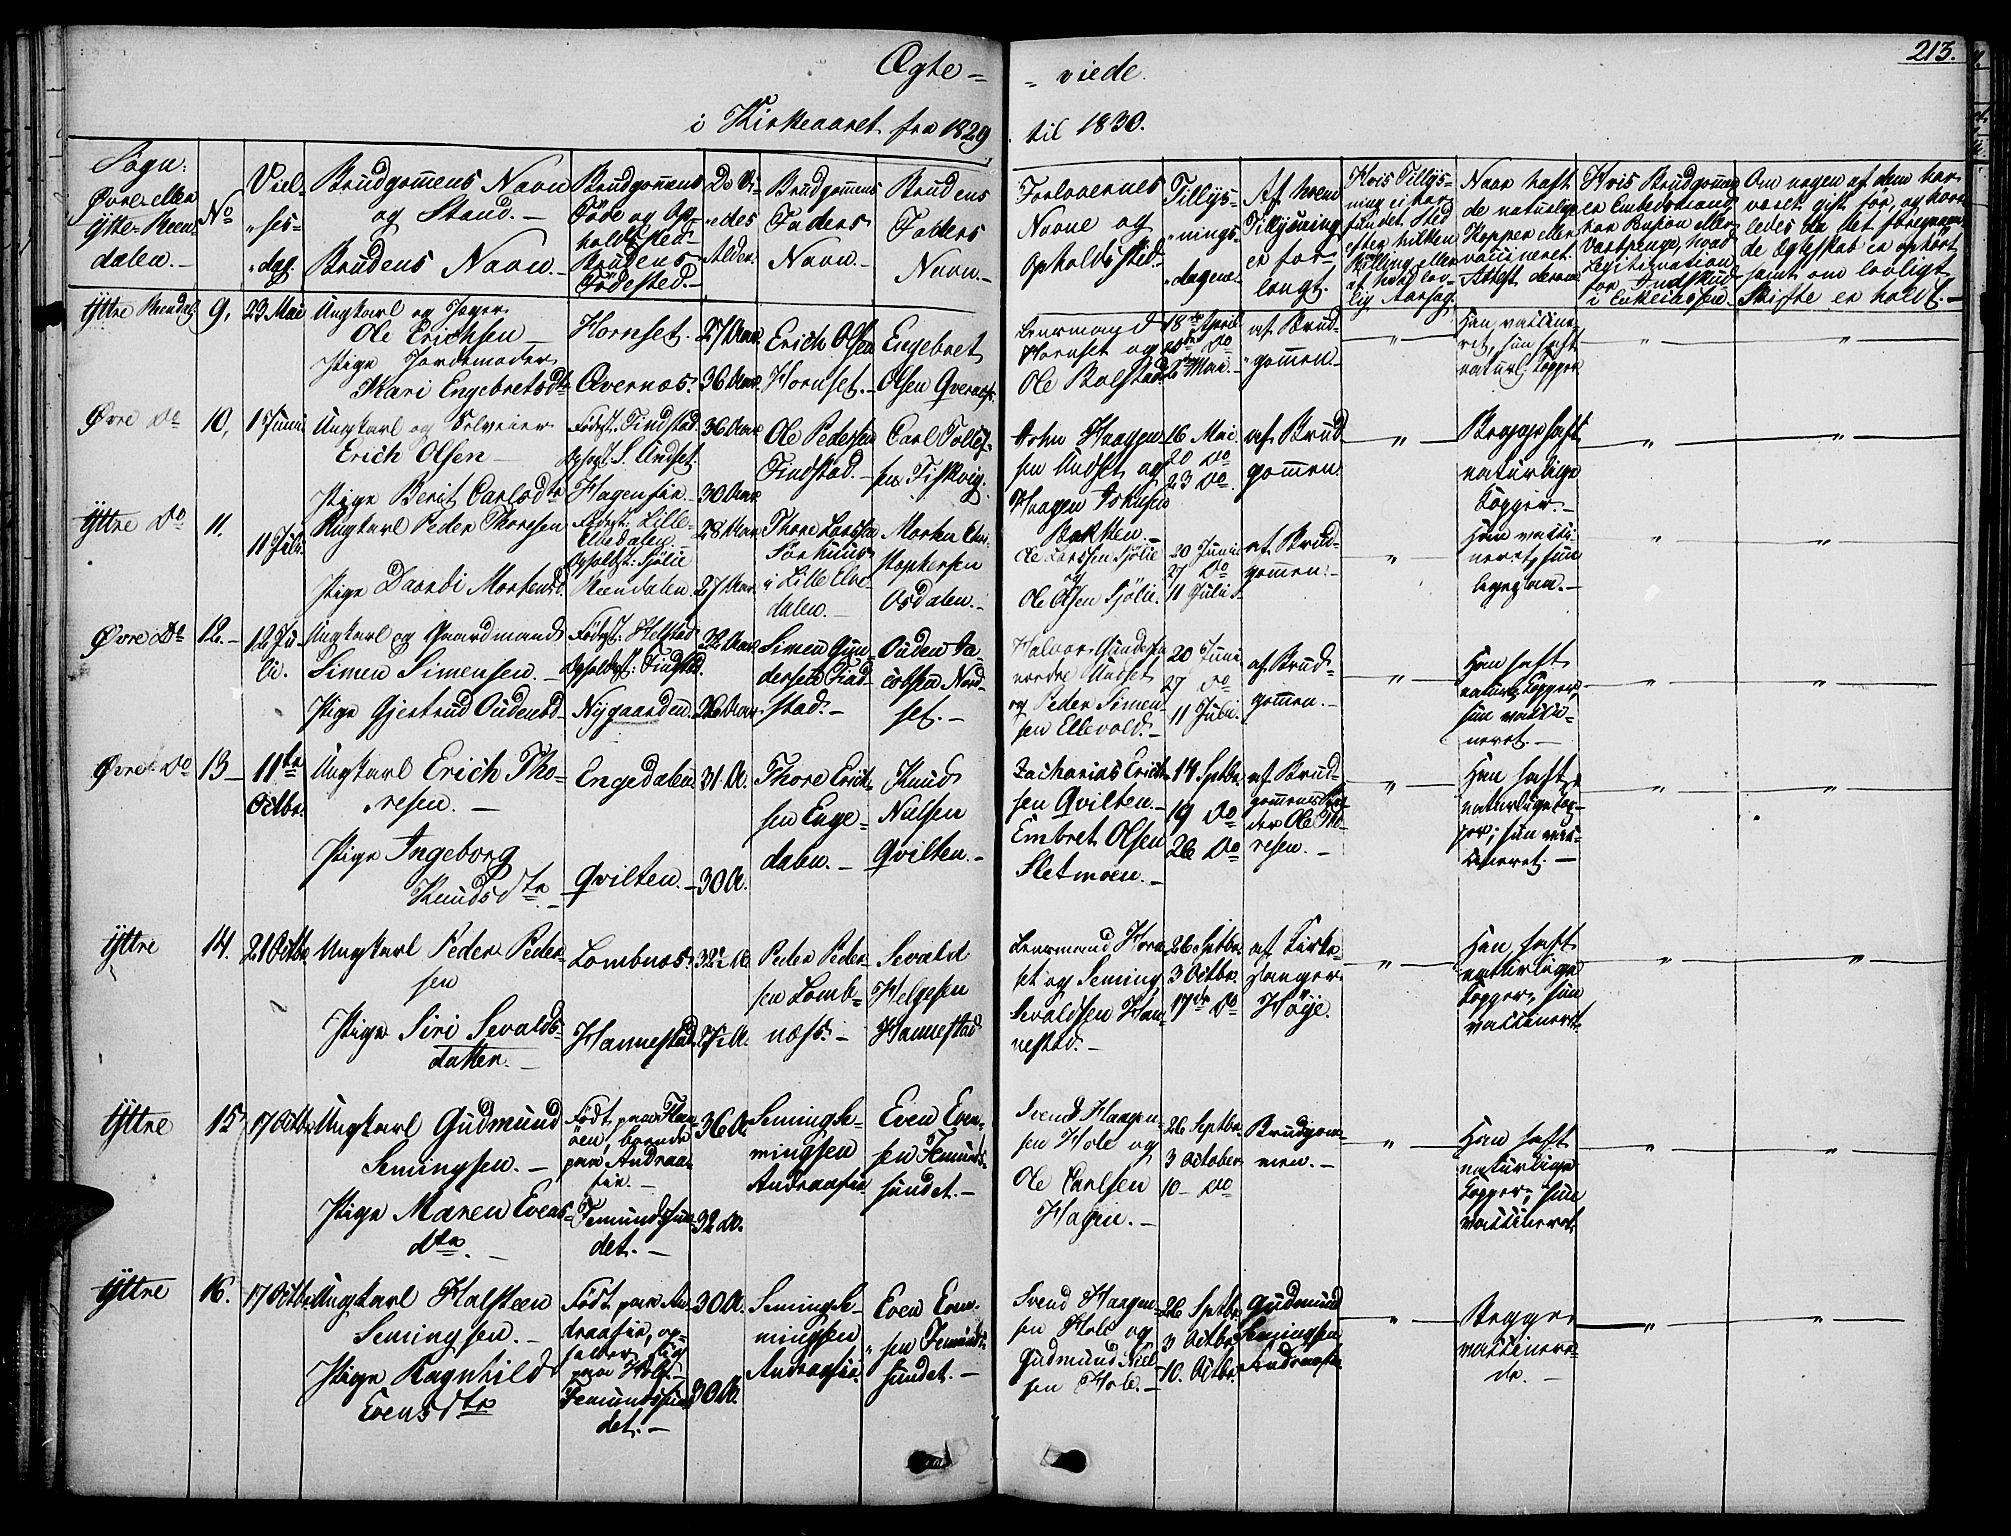 213.
Ægte=
= viede.
i Kirkeaaret fra 1829
til 1830.
Sogn:
Øvre eller
Ytte-Reen
dalen.
No
Viel-
ses-
dag.
Brudgommens Navn
og Stand.
Brudens Navn.
Brudgommens
Føde og Op-
holdssted
Brudens
Fødested.
De Vi-
edes
Alder.
Brudgommens
Faders
Navn.
Brudens
Faders
Navn.
Forlovernes
Navne og
Opholdssted.
Tillys-
nings-
dagene.
Af hvem
Tillysning
er for-
langt.
Hvis Tillys-
ning ei har
fundet Sted
efter hvilken
Bevilling eller
af hvad lov-
lig Aarsag.
Naar haft
de naturlige
Kopper eller
vaccineret.
Attest derom
Hvis Brudgommen
er Embedsmand
har Pension eller
Vartpenge, hvad
Legitimation
for Indskud
i Enkecassen.
Om nogen af dem har
været gift før, og hvor-
ledes da det foregaaen-
de Ægteskab er ophört
samt om lovligt
Skifte er holdt.
Yttre Rendal
9,
23 Mai
Ungkarl og Jæger
Ole Erichsen
Pige Jordemoder
Kari Engebretsdtr
Hornset.
Qvernæs.
27 Aar
36 Aar
Erich Olsen
Hornset.
Engebret
Olsen Qvernæs
Lensmand
Hornset og
Ole Bolstad
18de April
Do
Mai.
af Brud-
gommen
Han vaccine-
ret, hun haft
naturl. Kopper
Øvre Do
10,
1 Juni
Ungkarl og Selveier
Erich Olsen
Pige Berit Carlsdtr
Födest. Findstad
Opholdst. S. Undset.
Hagensæ
36 Aar
30 Aar
Ole Pedersen
Findstad.
Carl Tollef-
sen Fiskvig.
John Haagen-
sen Undset og
Haagen Johnsen
Bakken.
16 Mai
20 Do
23 Do
af Brud
gommen
Begge haft
naturlige
Kopper.
Yttre Do
11.
11 Juli
Ungkarl Peder Thoresen
Pige Dordi Mortensd
Födest: Lille-
Elvedalen
Opholdst: Sjölie
Reendalen
28 Aar
27 Aar
Thore Larssen
i Lille Elve
dalen.
Morten Chri-
stophersen
Osdalen.
Ole Larssen Sjölie
og
Ole Olsen Sjölie.
20 Junii
27 Do
11 Julii
af Brud-
gommen.
Han vacci-
neret, hun
ligesaa.
Øvre Do
12.
12 Ju-
li.
Ungkarl og Gaardmand
Simen Simensen.
Pige Gjertrud Oudensd
Födest: Helstad
Opholdst: Findstad.
Nygaarden
32 Aar
26 Aar
Simen Gun-
dersen Find-
stad.
Ouden Ja-
cobsen Nord-
set.
Halvor Gundersen
nordre Undset
og Peder Simen-
sen Ellevold.
20 Juni
27 Do
11 Juli
af Brud-
gommen.
Han haft
naturl. Kopper,
hun vacci-
neret.
Øvre Do
13
11te
Octbr.
Ungkarl Erich Tho-
resen.
Pige Ingeborg
Knudsdtr.
Engedalen
Qvilten.
31 A.
30 A.
Thore Erich-
sen Enge-
dalen.
Knud
Nielsen
Qvilten.
Zacharias Erich-
sen Qvilten.
Embret Olsen
Sletmoen.
14 Septbr.
19 Do
26 Do
af Brud-
gommens Bro-
der Ole Tho-
resen.
Han haft
naturlige Kop-
per; hun vac-
cineret.
Yttre
14.
21 Octbr
Ungkarl Peder Peder-
sen
Pige Siri Sevalds-
datter.
Lombnæs
Hannestad
32½ A.
27½ A.
Peder Peder-
sen Lomb-
næss.
Sevald
Helgesen
Hannestad
Lensmand Horn
set og Seming
Sevaldsen Han-
nestad.
26 Septbr.
3 Octbr.
17de Do
af Kirke-
sanger
Höye.
Han haft
naturlige
Kopper, hun
vaccineret.
Yttre
15
17 Octbr
Ungkarl Gudmund
Semingsen.
Pige Maren Evens-
dtr.
Födt paa
öen, boende
paa Andraa-
sæ.
Femundsun-
det.
36 A.
32 A.
Seming Se-
mingsen
Andraasæ
Even Even-
sen Femund-
sundet.
Svend Haagen-
sen Hole og
Ole Carlsen
Hagen.
26 Septbr.
3 October
10 Do
Brudgom-
men.
Han haft
naturlige
Kopper, hun
vaccineret
Yttre
16.
17 Octbr
Ungkarl Halsteen
Semingsen.
Pige Ragnhild
Evensdtr
Födt paa An-
draasæ, op-
holder sig
paa Hole.
Femundsun-
det.
30 A.
30 A.
Seming Se-
mingsen
Andraasæ.
Even Even-
sen Femund-
sundet.
Svend Haagen-
sen Hole og
Gudmund Niel-
sen Hole.
26 Septbr
3 Octbr
10. Octbr.
Gudmund
Semingsen
Andraasæ
Begge
vaccinere-
de.